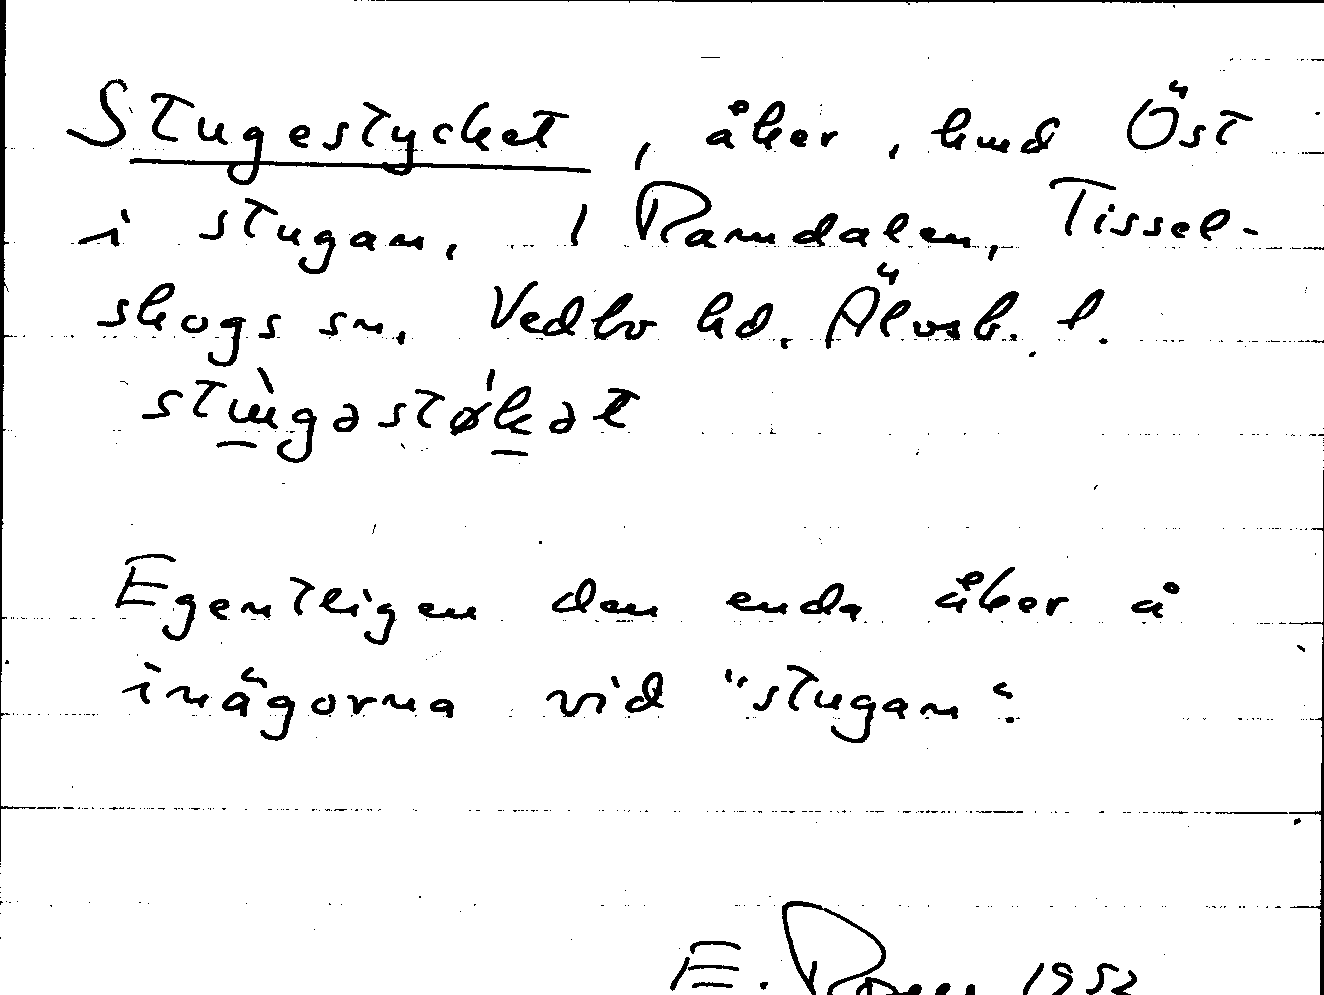 Stugestycket, åker, hmd Öst
i stugan, 1 Ramdalen, Tissel-
skogs sn, Vedbo hd. Älvsb. l.
Egentligen den enda åker å
inägorna vid "stugan".
E. 1952